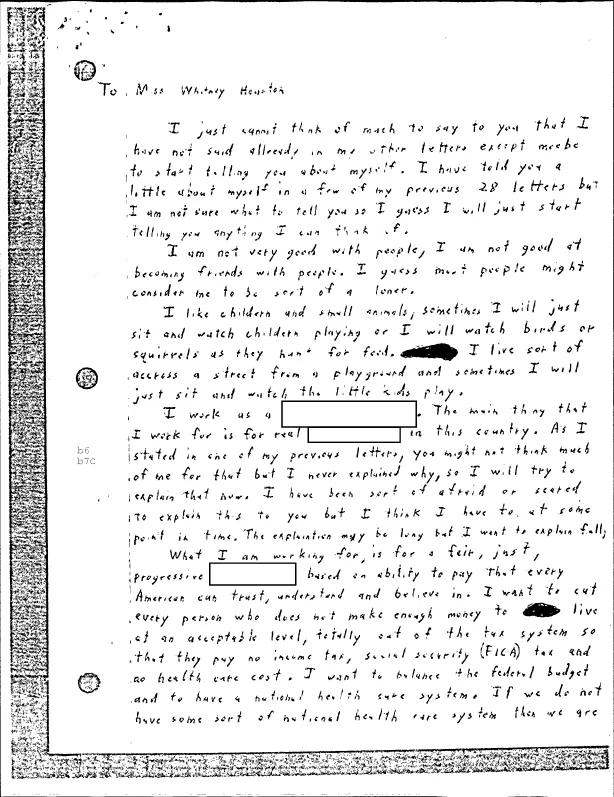 To Miss Whitney Houston
I just cannot think of much to say to you that I
have not said allready in my other letters except maebe
to start telling you about myself. I have told you a
little about myself in a few of my previous 28 letters but
I am not sure what to tell you so I guess I will just start
telling you anything I can think of.
I am not very good with people, I am not good at
becoming friends with people. I guess most people might
consider me to be sort of a loner.
I like childern and small animals, sometimes I will just
sit and watch childern playing or I will watch birds or
squirrels as they hunt for food. I live sort of
accross a street from a playground and sometimes I will
just sit and watch the little kids play.
I work as a . The main thing that
I work for is for real in this country. As I
b6
stated in one of my previous letters, you might not think much
b7C
of me for that but I never explained why, so I will try to
explain that now. I have been sort of afraid or scared
to explain this to you but I think I have to at some
point in time. The explaintion may be long but I want to explain fully
What I am working for, is for a fair, just,
progressive based on ability to pay that every
American can trust, understand and believe in. I want to cut
every person who does not make enough money to live
at an acceptable level, totally out of the tax system so
that they pay no income tax, social security (FICA) tax and
no health care cost. I want to balance the federal budget
and to have a national health care system. If we do not
have some sort of national health care system then we are